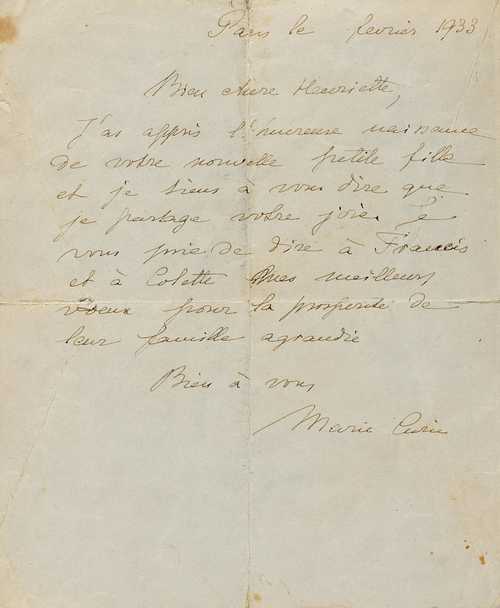 Paris le février 1933
Bien chère Henriette,
J'ai appris l'heureuse naissance
de votre nouvelle petite fille
et je tiens à vous dire que
je partage votre joie. Je
vous prie de dire à Francis
et à Colette mes meilleurs
vœux pour la prosperité de
leur famille agrandie
Bien à vous
Marie Curie